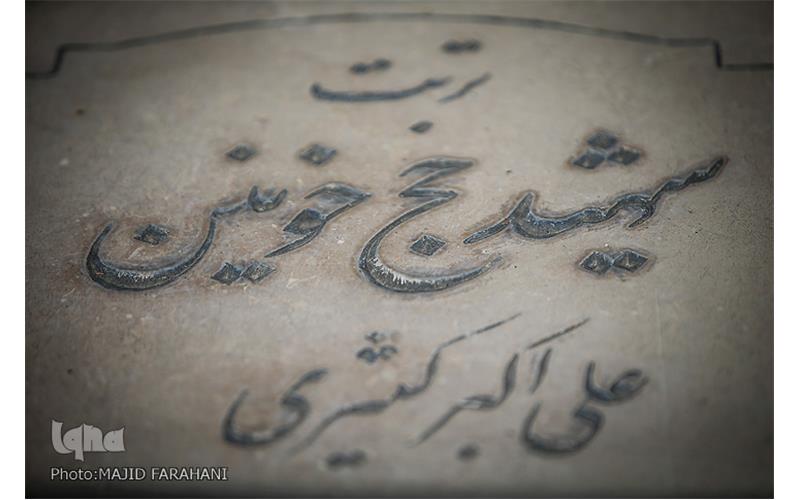 تربت
شهید حج خونین
علی اکبر کثیری
Iqna
Photo:MAJID FARAHANI